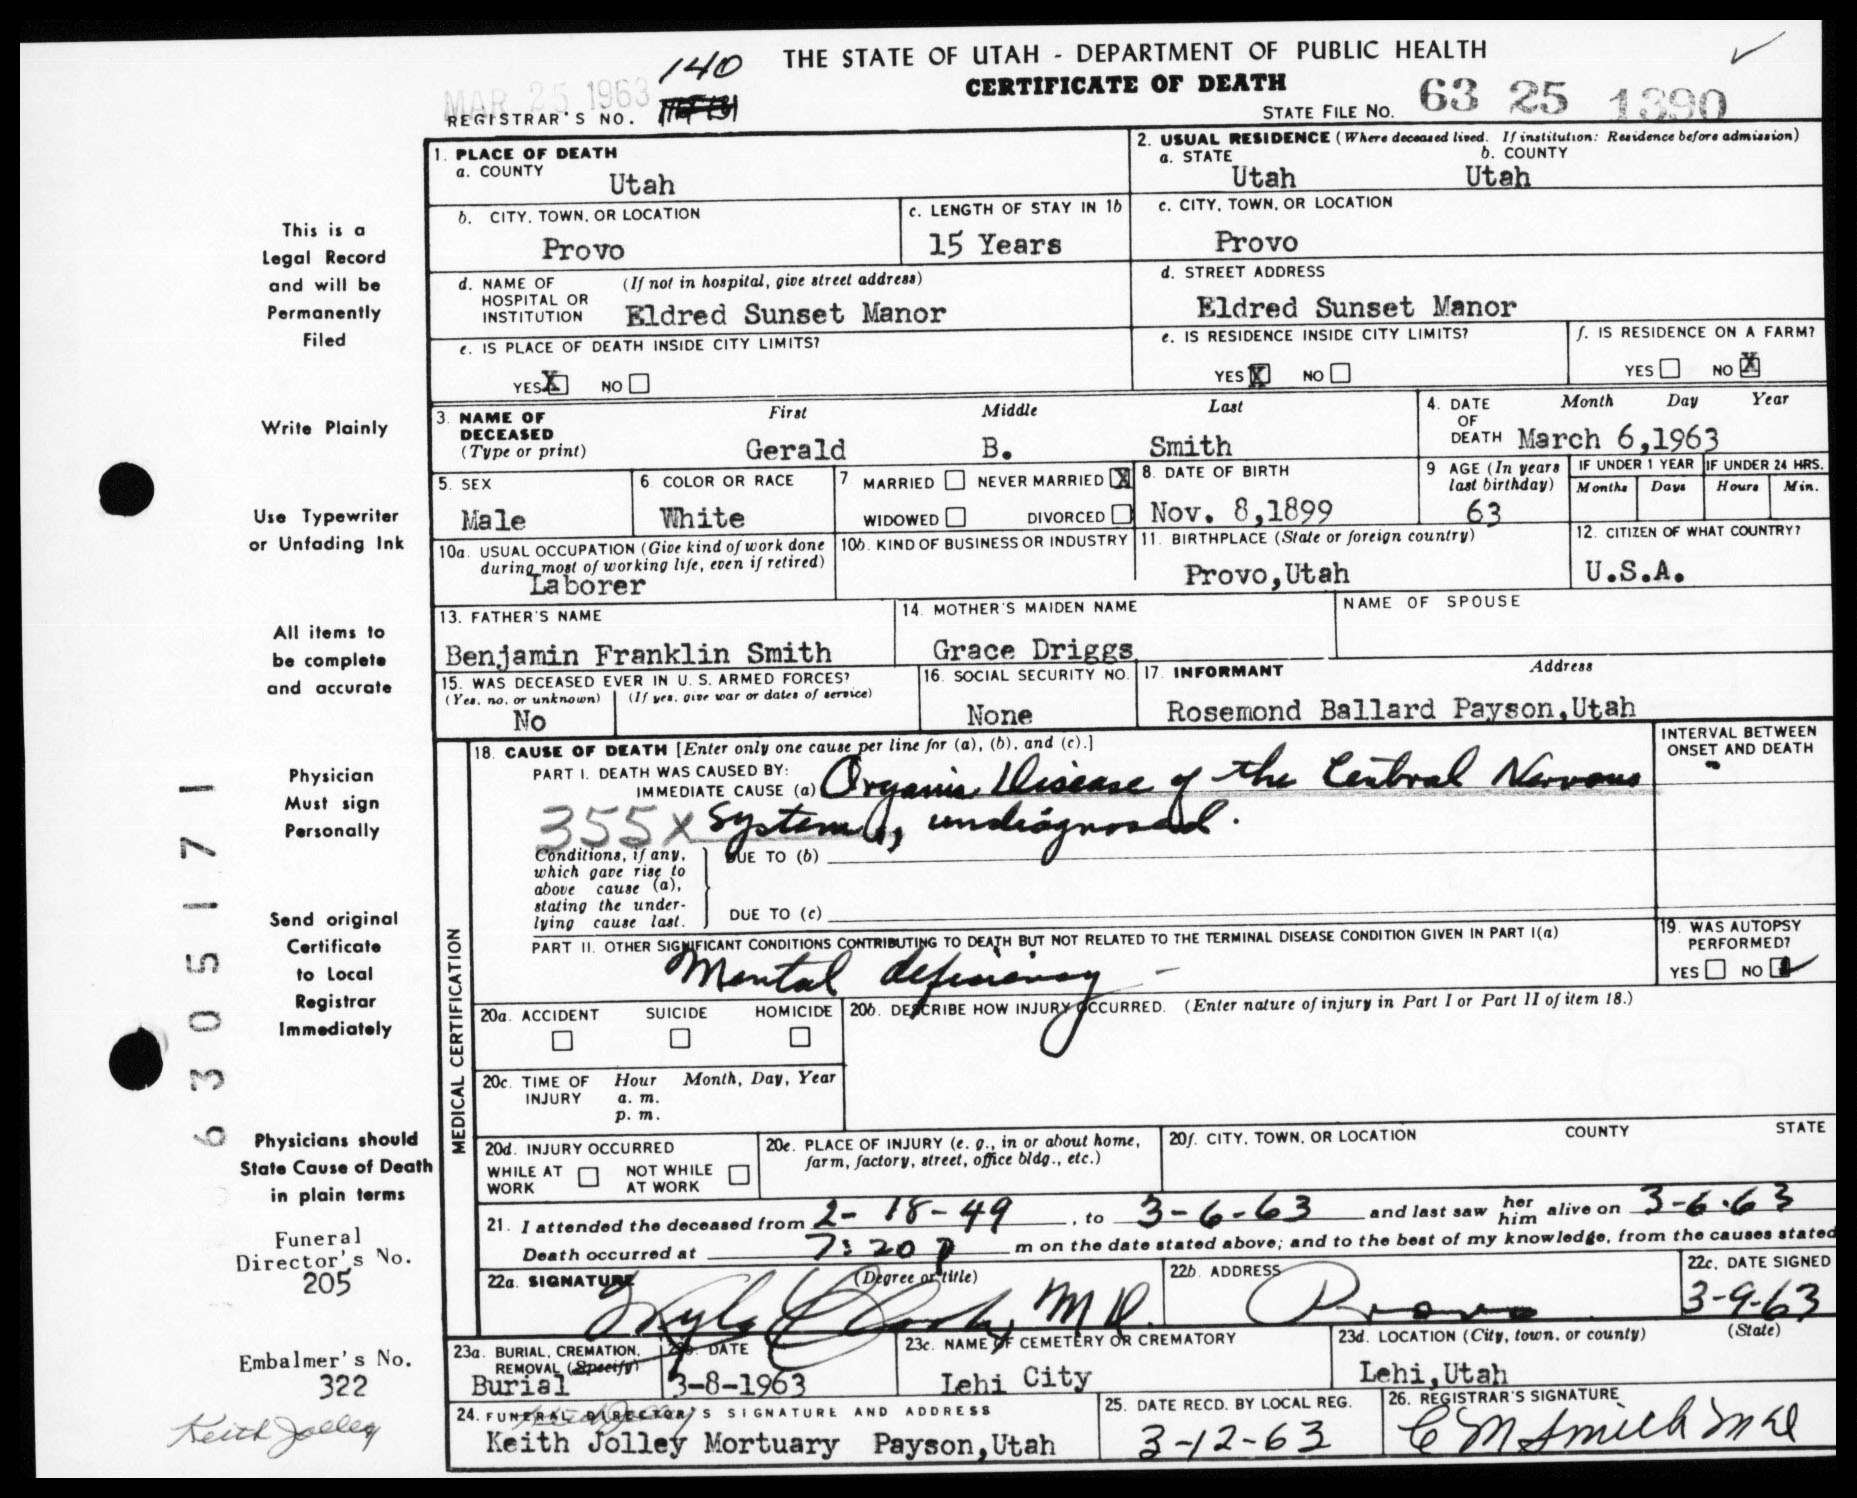 THE STATE OF UTAH - DEPARTMENT OF PUBLIC HEALTH
CERTIFICATE OF DEATH
MAR 25 1963
140
REGISTRAR'S NO.
STATE FILE NO. 63 25 1390
This is a
Legal Record
and will be
Permanently
Filed
Write Plainly
Use Typewriter
or Unfading Ink
All items to
be complete
and accurate
Physician
Must sign
Personally
Send original
Certificate
to Local
Registrar
Immediately
Physicians should
State Cause of Death
in plain terms
Funeral
Director's No.
205
Embalmer's No.
322
Keith Jolley
6305-171
1. PLACE OF DEATH
a. COUNTY
Utah
2. USUAL RESIDENCE (Where deceased lived. If institution: Residence before admission)
a. STATE b. COUNTY
Utah Utah
b. CITY, TOWN, OR LOCATION
Provo
c. LENGTH OF STAY IN 1b
15 Years
c. CITY, TOWN, OR LOCATION
Provo
d. NAME OF HOSPITAL OR INSTITUTION (If not in hospital, give street address)
Eldred Sunset Manor
d. STREET ADDRESS
Eldred Sunset Manor
e. IS PLACE OF DEATH INSIDE CITY LIMITS?
YES X NO
e. IS RESIDENCE INSIDE CITY LIMITS?
YES X NO
f. IS RESIDENCE ON A FARM?
YES NO X
3. NAME OF DECEASED (Type or print)
First Middle Last
Gerald B. Smith
4. DATE OF DEATH Month Day Year
March 6,1963
5. SEX
Male
6 COLOR OR RACE
White
7 MARRIED NEVER MARRIED X
WIDOWED DIVORCED
8. DATE OF BIRTH
Nov. 8,1899
9 AGE (In years last birthday)
63
IF UNDER 1 YEAR
Months Days
IF UNDER 24 HRS.
Hours Min.
10a. USUAL OCCUPATION (Give kind of work done during most of working life, even if retired)
Laborer
10b. KIND OF BUSINESS OR INDUSTRY
11. BIRTHPLACE (State or foreign country)
Provo,Utah
12. CITIZEN OF WHAT COUNTRY?
U.S.A.
13. FATHER'S NAME
Benjamin Franklin Smith
14. MOTHER'S MAIDEN NAME
Grace Driggs
NAME OF SPOUSE
15. WAS DECEASED EVER IN U. S. ARMED FORCES?
(Yes, no, or unknown) (If yes, give war or dates of service)
No
16. SOCIAL SECURITY NO.
None
17. INFORMANT Address
Rosemond Ballard Payson,Utah
MEDICAL CERTIFICATION
18. CAUSE OF DEATH [Enter only one cause per line for (a), (b), and (c).]
INTERVAL BETWEEN ONSET AND DEATH
PART I. DEATH WAS CAUSED BY:
IMMEDIATE CAUSE (a) Organic Disease of the Central Nervous
355X System, undiagnosed.
Conditions, if any, which gave rise to above cause (a), stating the underlying cause last.
DUE TO (b)
DUE TO (c)
PART II. OTHER SIGNIFICANT CONDITIONS CONTRIBUTING TO DEATH BUT NOT RELATED TO THE TERMINAL DISEASE CONDITION GIVEN IN PART I(a)
Mental deficiency -
19. WAS AUTOPSY PERFORMED?
YES NO
20a. ACCIDENT SUICIDE HOMICIDE
20b. DESCRIBE HOW INJURY OCCURRED. (Enter nature of injury in Part I or Part II of item 18.)
20c. TIME OF INJURY Hour Month, Day, Year
a. m.
p. m.
20d. INJURY OCCURRED
WHILE AT WORK NOT WHILE AT WORK
20e. PLACE OF INJURY (e. g., in or about home, farm, factory, street, office bldg., etc.)
20f. CITY, TOWN, OR LOCATION COUNTY STATE
21. I attended the deceased from 2-18-49, to 3-6-63 and last saw her him alive on 3-6-63
Death occurred at 7:20 p m on the date stated above; and to the best of my knowledge, from the causes stated
22a. SIGNATURE (Degree or title)
M.D.
22b. ADDRESS
Provo
22c. DATE SIGNED
3-9-63
23a. BURIAL, CREMATION, REMOVAL (Specify)
Burial
23b. DATE
3-8-1963
23c. NAME OF CEMETERY OR CREMATORY
Lehi City
23d. LOCATION (City, town, or county) (State)
Lehi,Utah
24. FUNERAL DIRECTOR'S SIGNATURE AND ADDRESS
Keith Jolley Mortuary Payson,Utah
25. DATE RECD. BY LOCAL REG.
3-12-63
26. REGISTRAR'S SIGNATURE
C M Smith MD